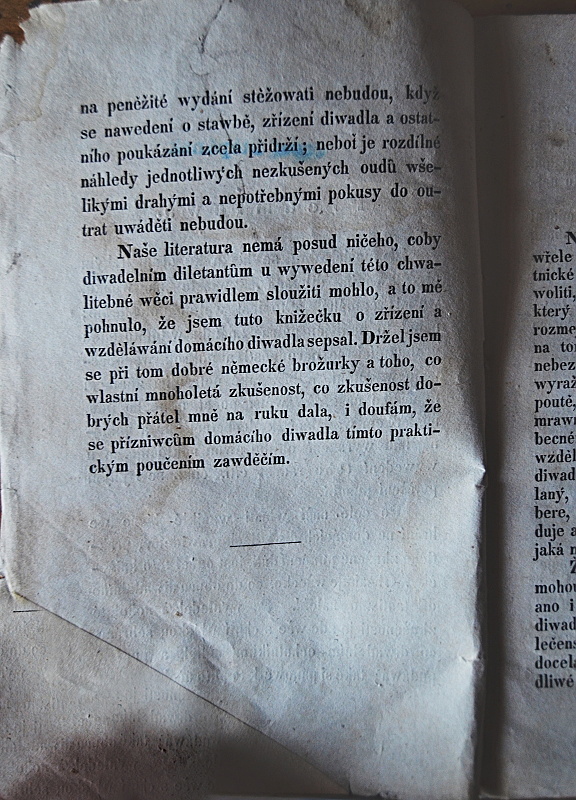 na peněžité wydání stěžowati nebudou, když
se nawedení o stawbě, zřízení diwadla a ostat-
ního poukázání zcela přidrží; neboť je rozdílné
náhledy jednotliwých nezkušených oudů wše-
likými drahými a nepotřebnými pokusy do ou-
trat uwáděti nebudou.
Naše literatura nemá posud ničeho, coby
diwadelním diletantům u wywedení této chwa-
litebné wěci prawidlem sloužiti mohlo, a to mé
pohnulo, že jsem tuto knižečku o zřízení a
wzděláwání domácího diwadla sepsal. Držel jsem
se při tom dobré německé brožurky a toho, co
wlastní mnoholetá zkušenost, co zkušenost do-
brých přátel mně na ruku dala, i doufám, že
se přízniwcům domácího diwadla tímto prakti-
ckým poučením zawděčím.
N
wřele
tnické
woliti,
který
rozme
na to
nebez
wyraž
poutě,
mraw
becné
wzděl
diwad
laný,
bere,
duje a
jaká n
Z
mohou
ano i
diwad
lečens
docela
dliwé